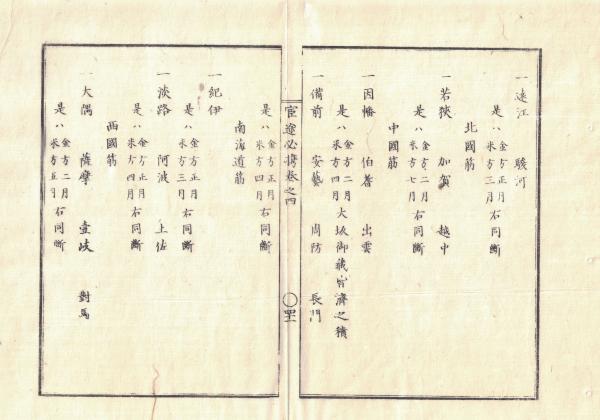 一遠江 駿河
是ハ 金方正月 米方三月 右同断
北國筋
一若狭 加賀 越中
是ハ 金方二月 米方七月 右同断
中國筋
一因幡 伯耆 出雲
是ハ 金方二月 米方四月 大坂御蔵皆済之積
一備前 安藝 周防 長門
宦途必携巻之四 〇四十一
是ハ 金方正月 米方四月
南海道筋
一紀伊
是ハ 金方正月 米方三月 右同断
一淡路 阿波 土佐
是ハ 金方正月 米方四月 右同断
西國筋
一大隅 薩摩 壹岐 對馬
是ハ 金方二月 米方五月 右同断